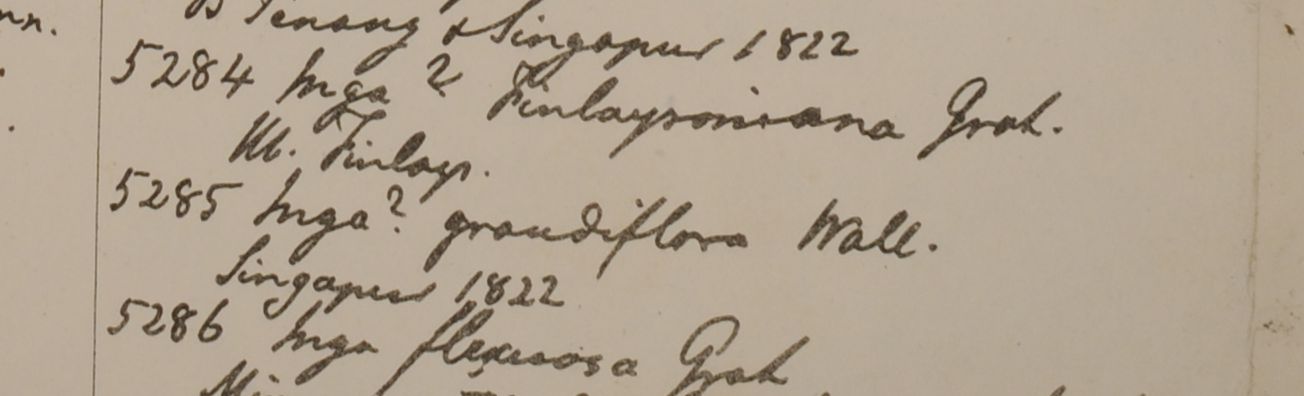 B Penang & Singapur 1822
5284 Inga ? Finlaysoniana Grah.
H. Finlays.
5285 Inga ? grandiflora Wall.
Singapur 1822
5286 Inga flexuosa Grah